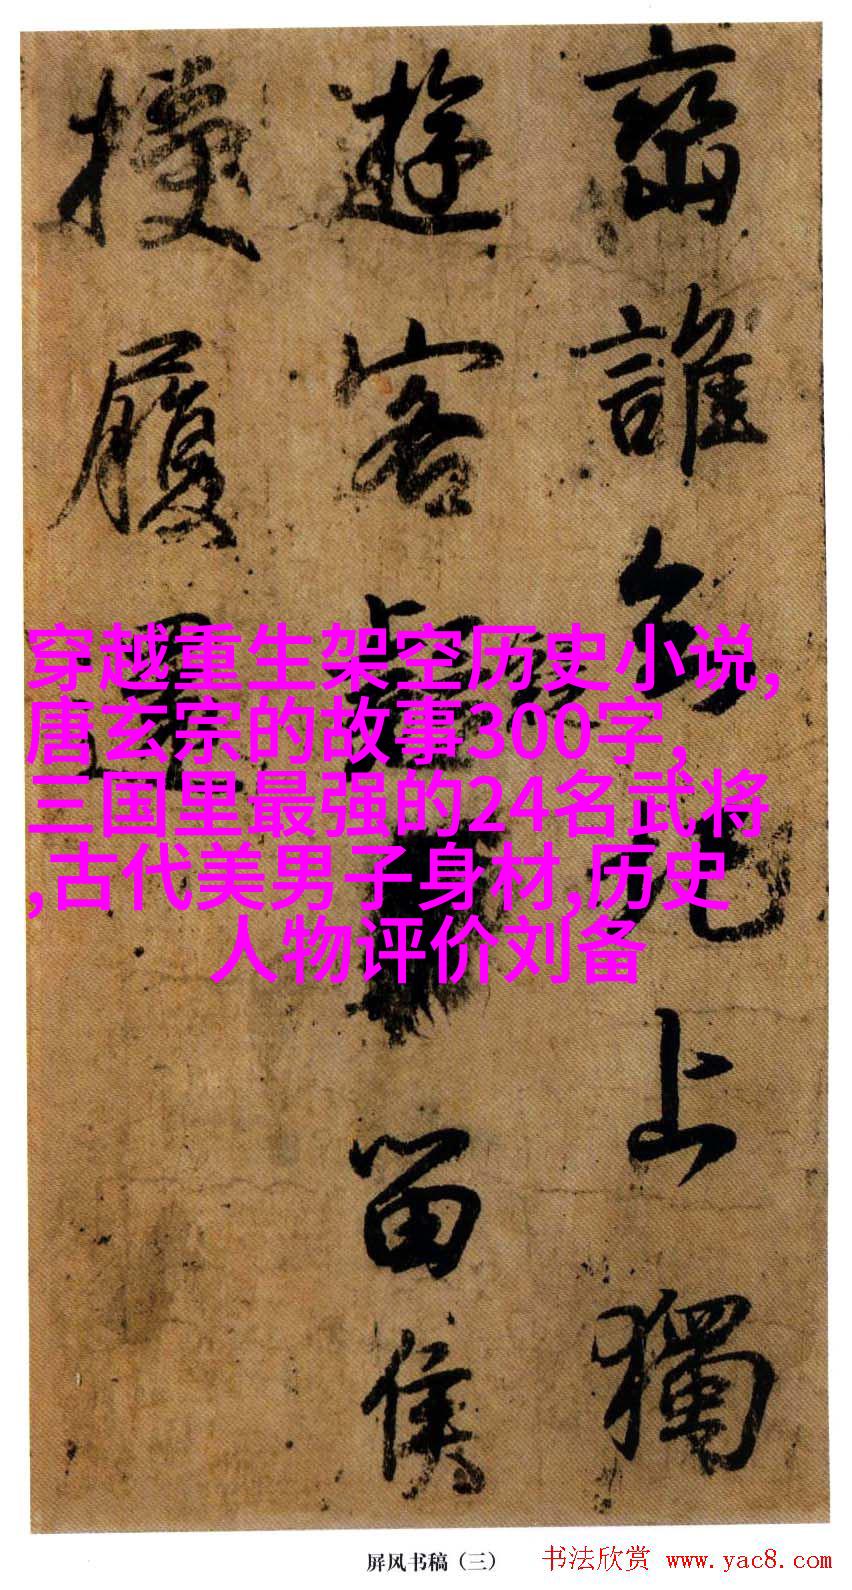 峦誰上獨
遊客留侯
履
穿越重生架空历史小说,
唐玄宗的故事300字,
三国里最强的24名武将
,古代美男子身材,历史
人物评价刘备
屏风书稿（三）
书法欣赏 www.yac8.com